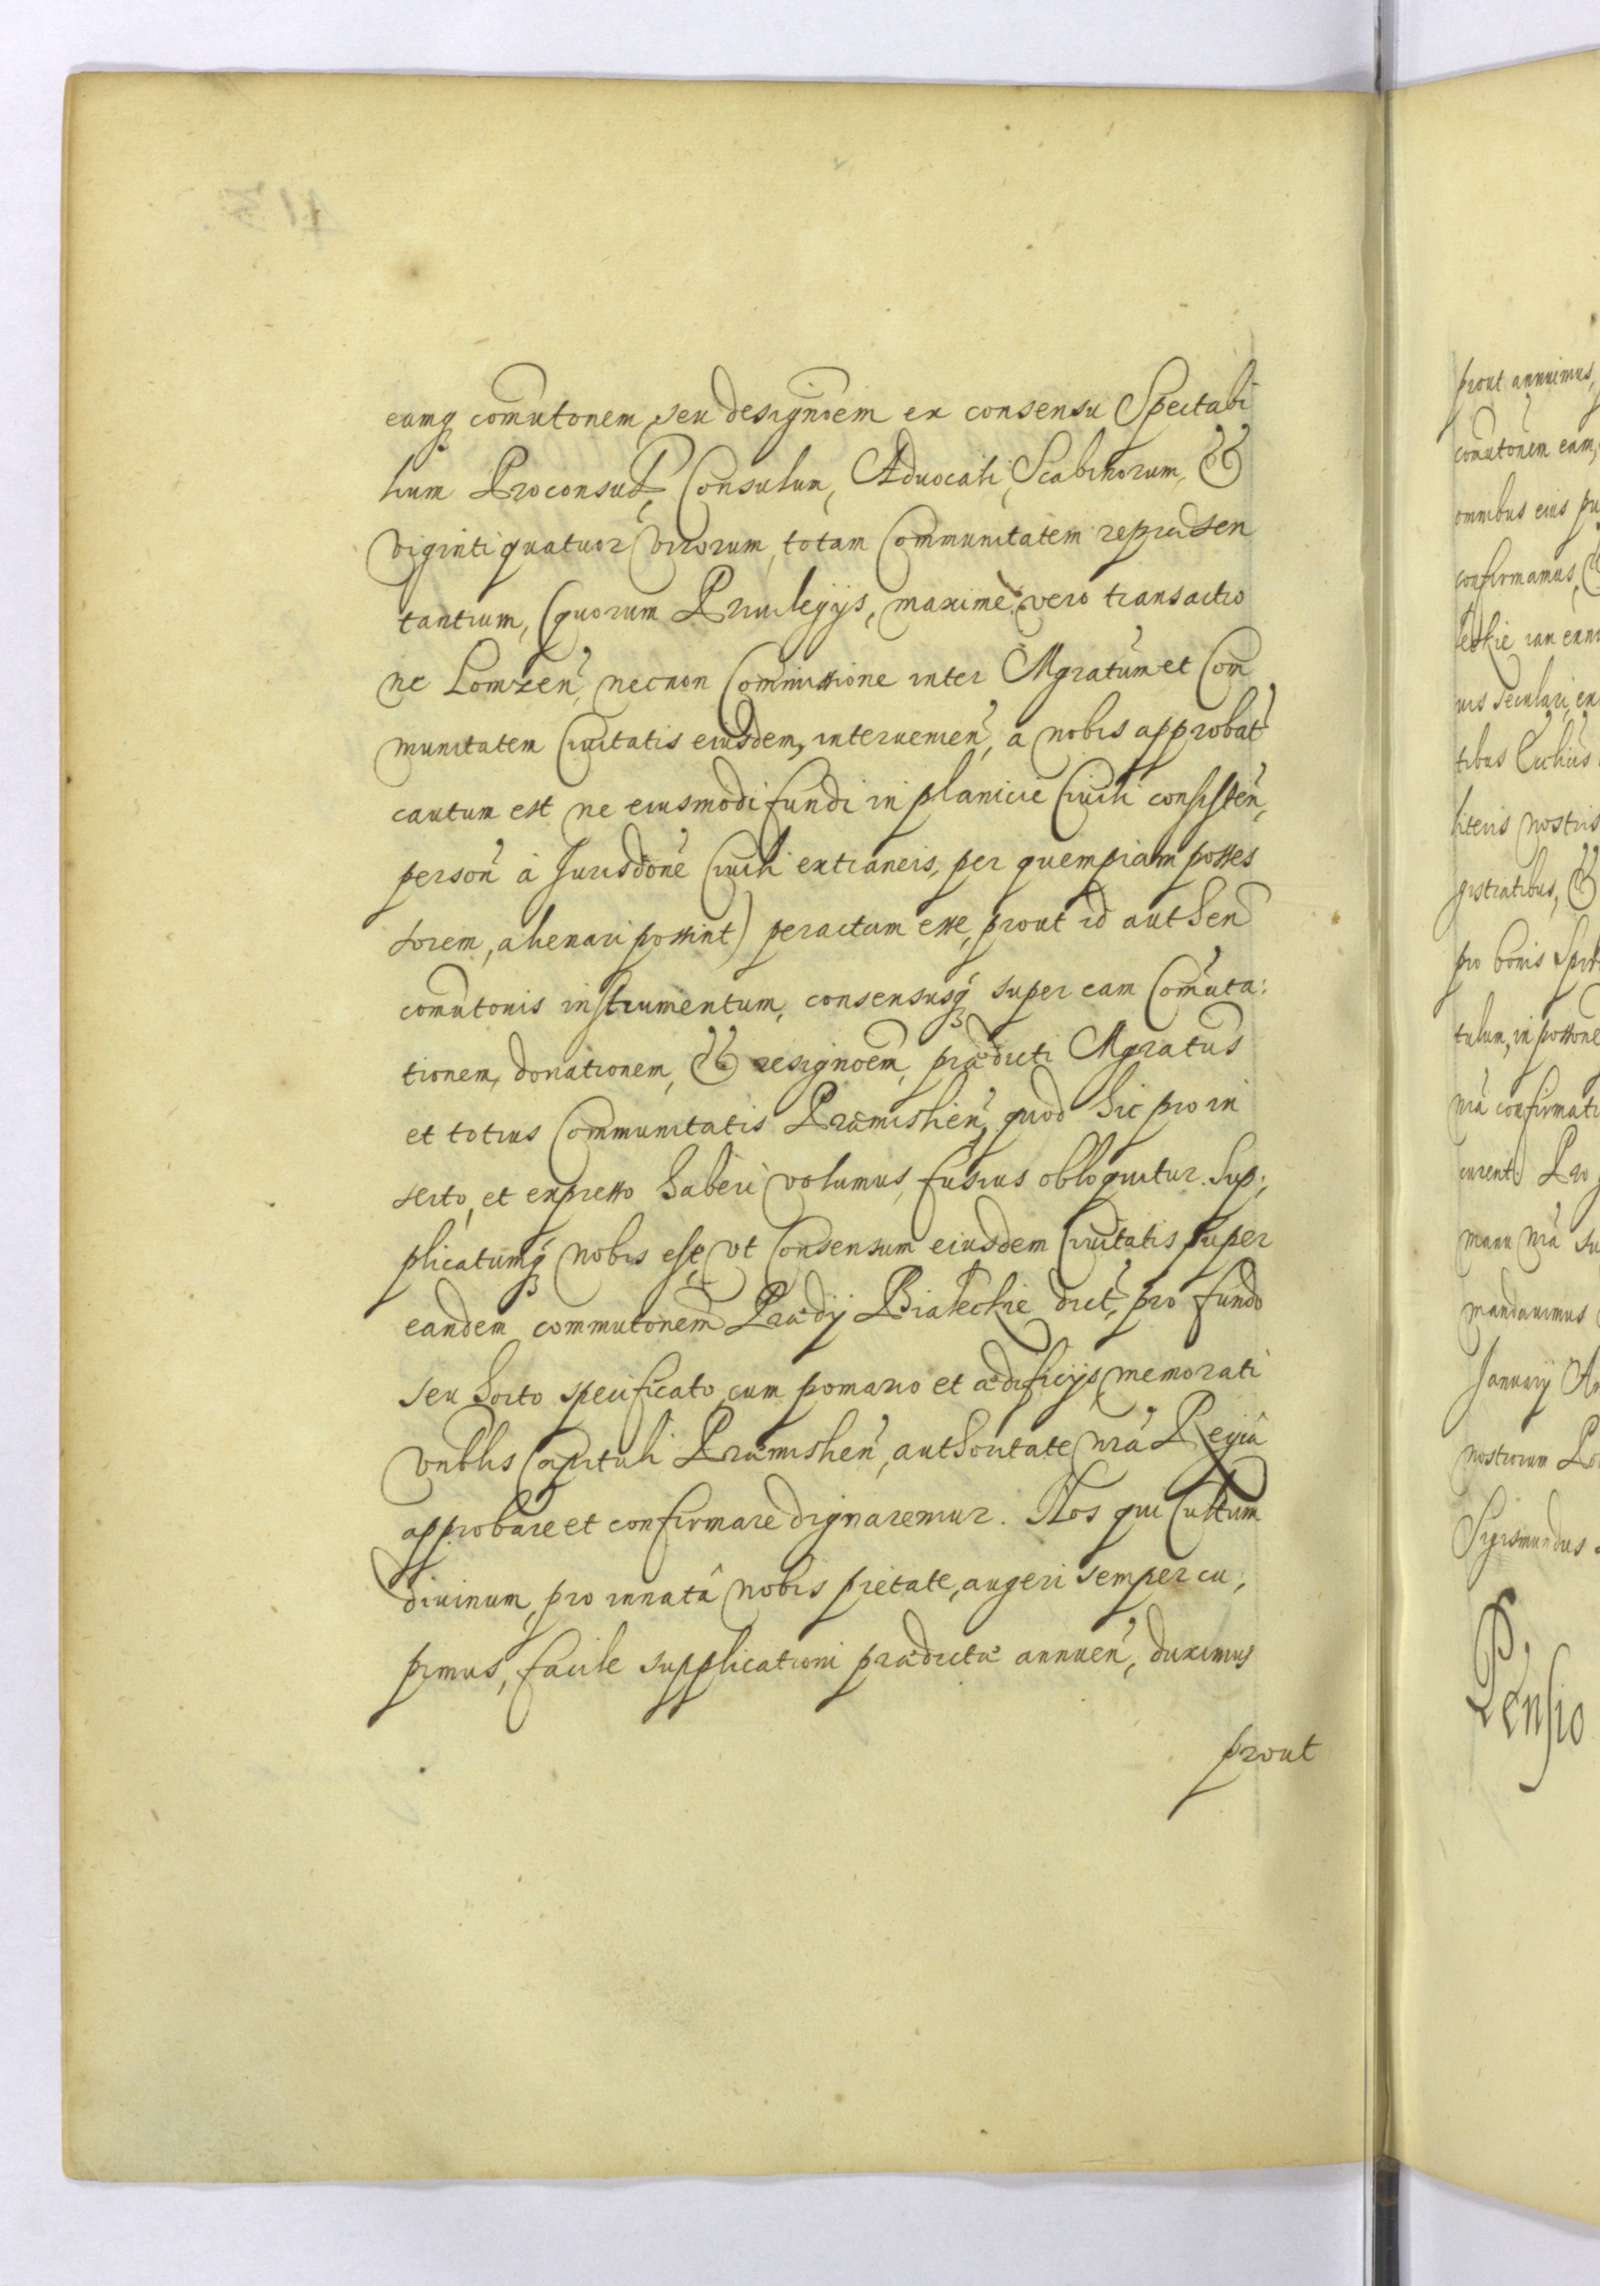 eamq comutonem, seu designoem ex consensu Spectabi
lium Proconsul, Consulum, Aduocati, Scabinorum, &
viginti quatuor virorum, totam Communitatem repræsen
tantium, (quorum Priuilegijs, maximè vero transactio
ne Lomzen, necnon Commissione inter Mgratum et Com
munitatem Ciuitatis eiusdem, interuenien, a nobis approbat
cautum est ne eiusmodi fundi in planicie Ciuili consisten,
person à Jurisdone Ciuili extraneis, per quempiam posses
sorem, alienari possint) peractum esse, prout id authen
comutonis instrumentum, consensusq super eam Comuta:
tionem, donationem, & resignoem, prædicti Mgratus
et totius Communitatis Præmislien, quod hic pro in
serto, et expresso haberi volumus, fusius obloquitur. Sup:
plicatumq nobis est, vt Consensum eiusdem Ciuitatis super
eandem commutonem Prædij Białeckie dict, pro fundo
seu horto specificato, cum pomario et ædificijs, memorati
Vnblis Capituli Præmislien, authoritate nrâ Regiâ
approbare et confirmare dignaremur. Nos qui Cultum
diuinum, pro innatâ nobis pietate, augeri semper cu:
pimus, facile supplicationi prædictæ annuen, duximus
prout
prout annuimus,
comutonem eam,
omnibus eius pu
confirmamus, &
uis seculari, ex
literis nostris
gistratibus, &
pro bonis Spir
tulum, in possone
nrâ confirmati
curent. Pro
manu nrâ su
mandauimus
Januarij An
nostrorum Po
Sigismundus
Pensio